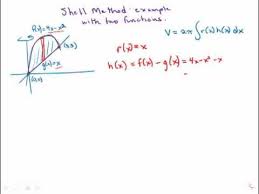 Shell Method - example
with two functions.
f(x) = 4x - x²
V = 2π ∫ r(x) h(x) dx
(3,3)
g(x) = x
(0,0)
r(x) = x
h(x) = f(x) - g(x) = 4x - x² - x
=